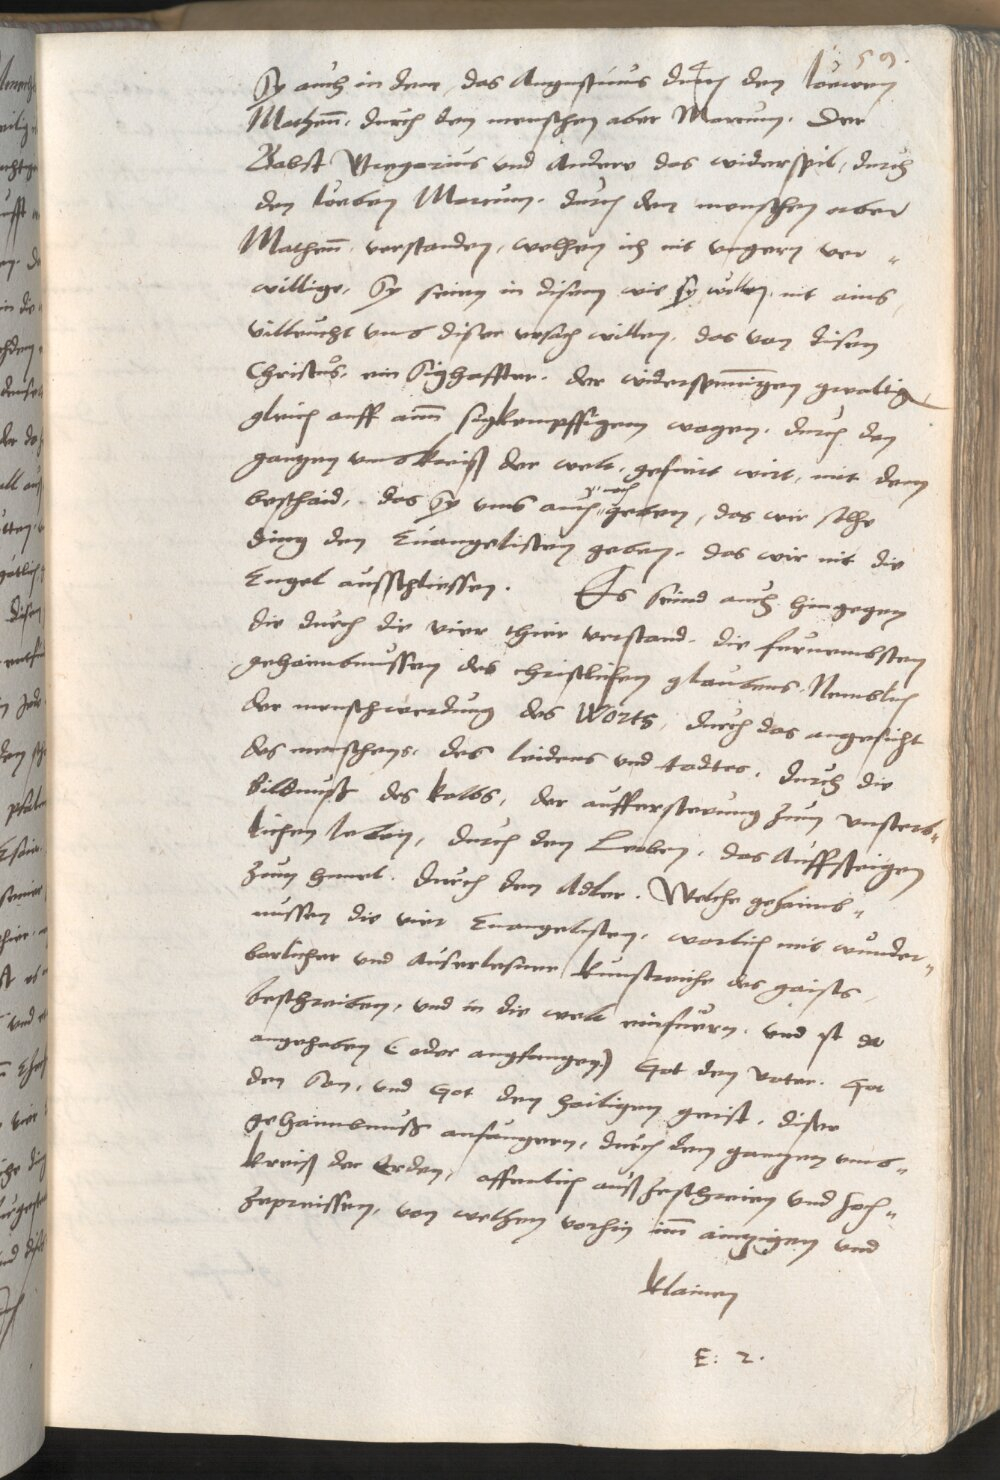 59.
Sy auch in dem, das Augustinus durch den Loewen
Matheum, durch den menschen aber Marcum. Der
Babst Gregorius und Andere das widerspil, durch
den Loeben Marcum. durch den menschen aber
Matheum verstanden, welhen ich nit ungern ver„
willige, Sy seien in disem wie sy wöllen nit ains,
villeucht umb diser ursach willen, das von disen
Christus, ein Sighaffter. der widerspennigen gwaltig
gleich auff aim sigkempffigen wagen. durch den
gantzen umbkraiß der welt, gefuert wirt, mit dem
beschaid, das Sy uns auch noch geben, das wir solhe
ding den Euangelisten geben. das wir nit die
Engel ausschliessen. Es seind auch hingegen
die durch die vier thier verstand. die furnembsten
gehaimbnussen des christlichen glaubens. Nemblich
der menschwerdung des Worts, durch das angesicht
des menschens. des leidens und todtes. durch die
bildnuß des kalbs, der aufferstevung zum unsterb„
lichen leben, durch den Leoben. das Auffsteigen
zum himel. durch den Adler. Welche gehaimb„
nussen die vier Euangelisten. warlich mit wunder„
barlicher und Auserlesner kunstreiche des gaists,
beschreiben, und in die welt einfuern. und ist da
angehaben (oder angfangen) Got den vater. Got
den Son, und Got den hailigen geist, diser
gehaimbnuß anfengern, durch den gantzen umb„
kraiß der Erden, offentlich auß zeschreien und hoch„
zepreissen, von welhen vorhin im ainzigen und
klainen
E: 2.